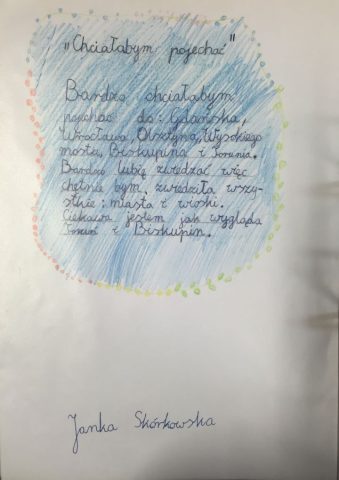 "Chciałabym pojechać"
Bardzo chciałabym
pojechać do: Gdańska,
Wrocławia, Olsztyna, Wysokiego
mostu, Biskupina i Torunia.
Bardzo lubię zwiedzać więc
chętnie bym zwiedziła wszy-
stkie: miasta i wioski.
Ciekawa jestem jak wygląda
Toruń i Biskupin.
Janka Skórkowska